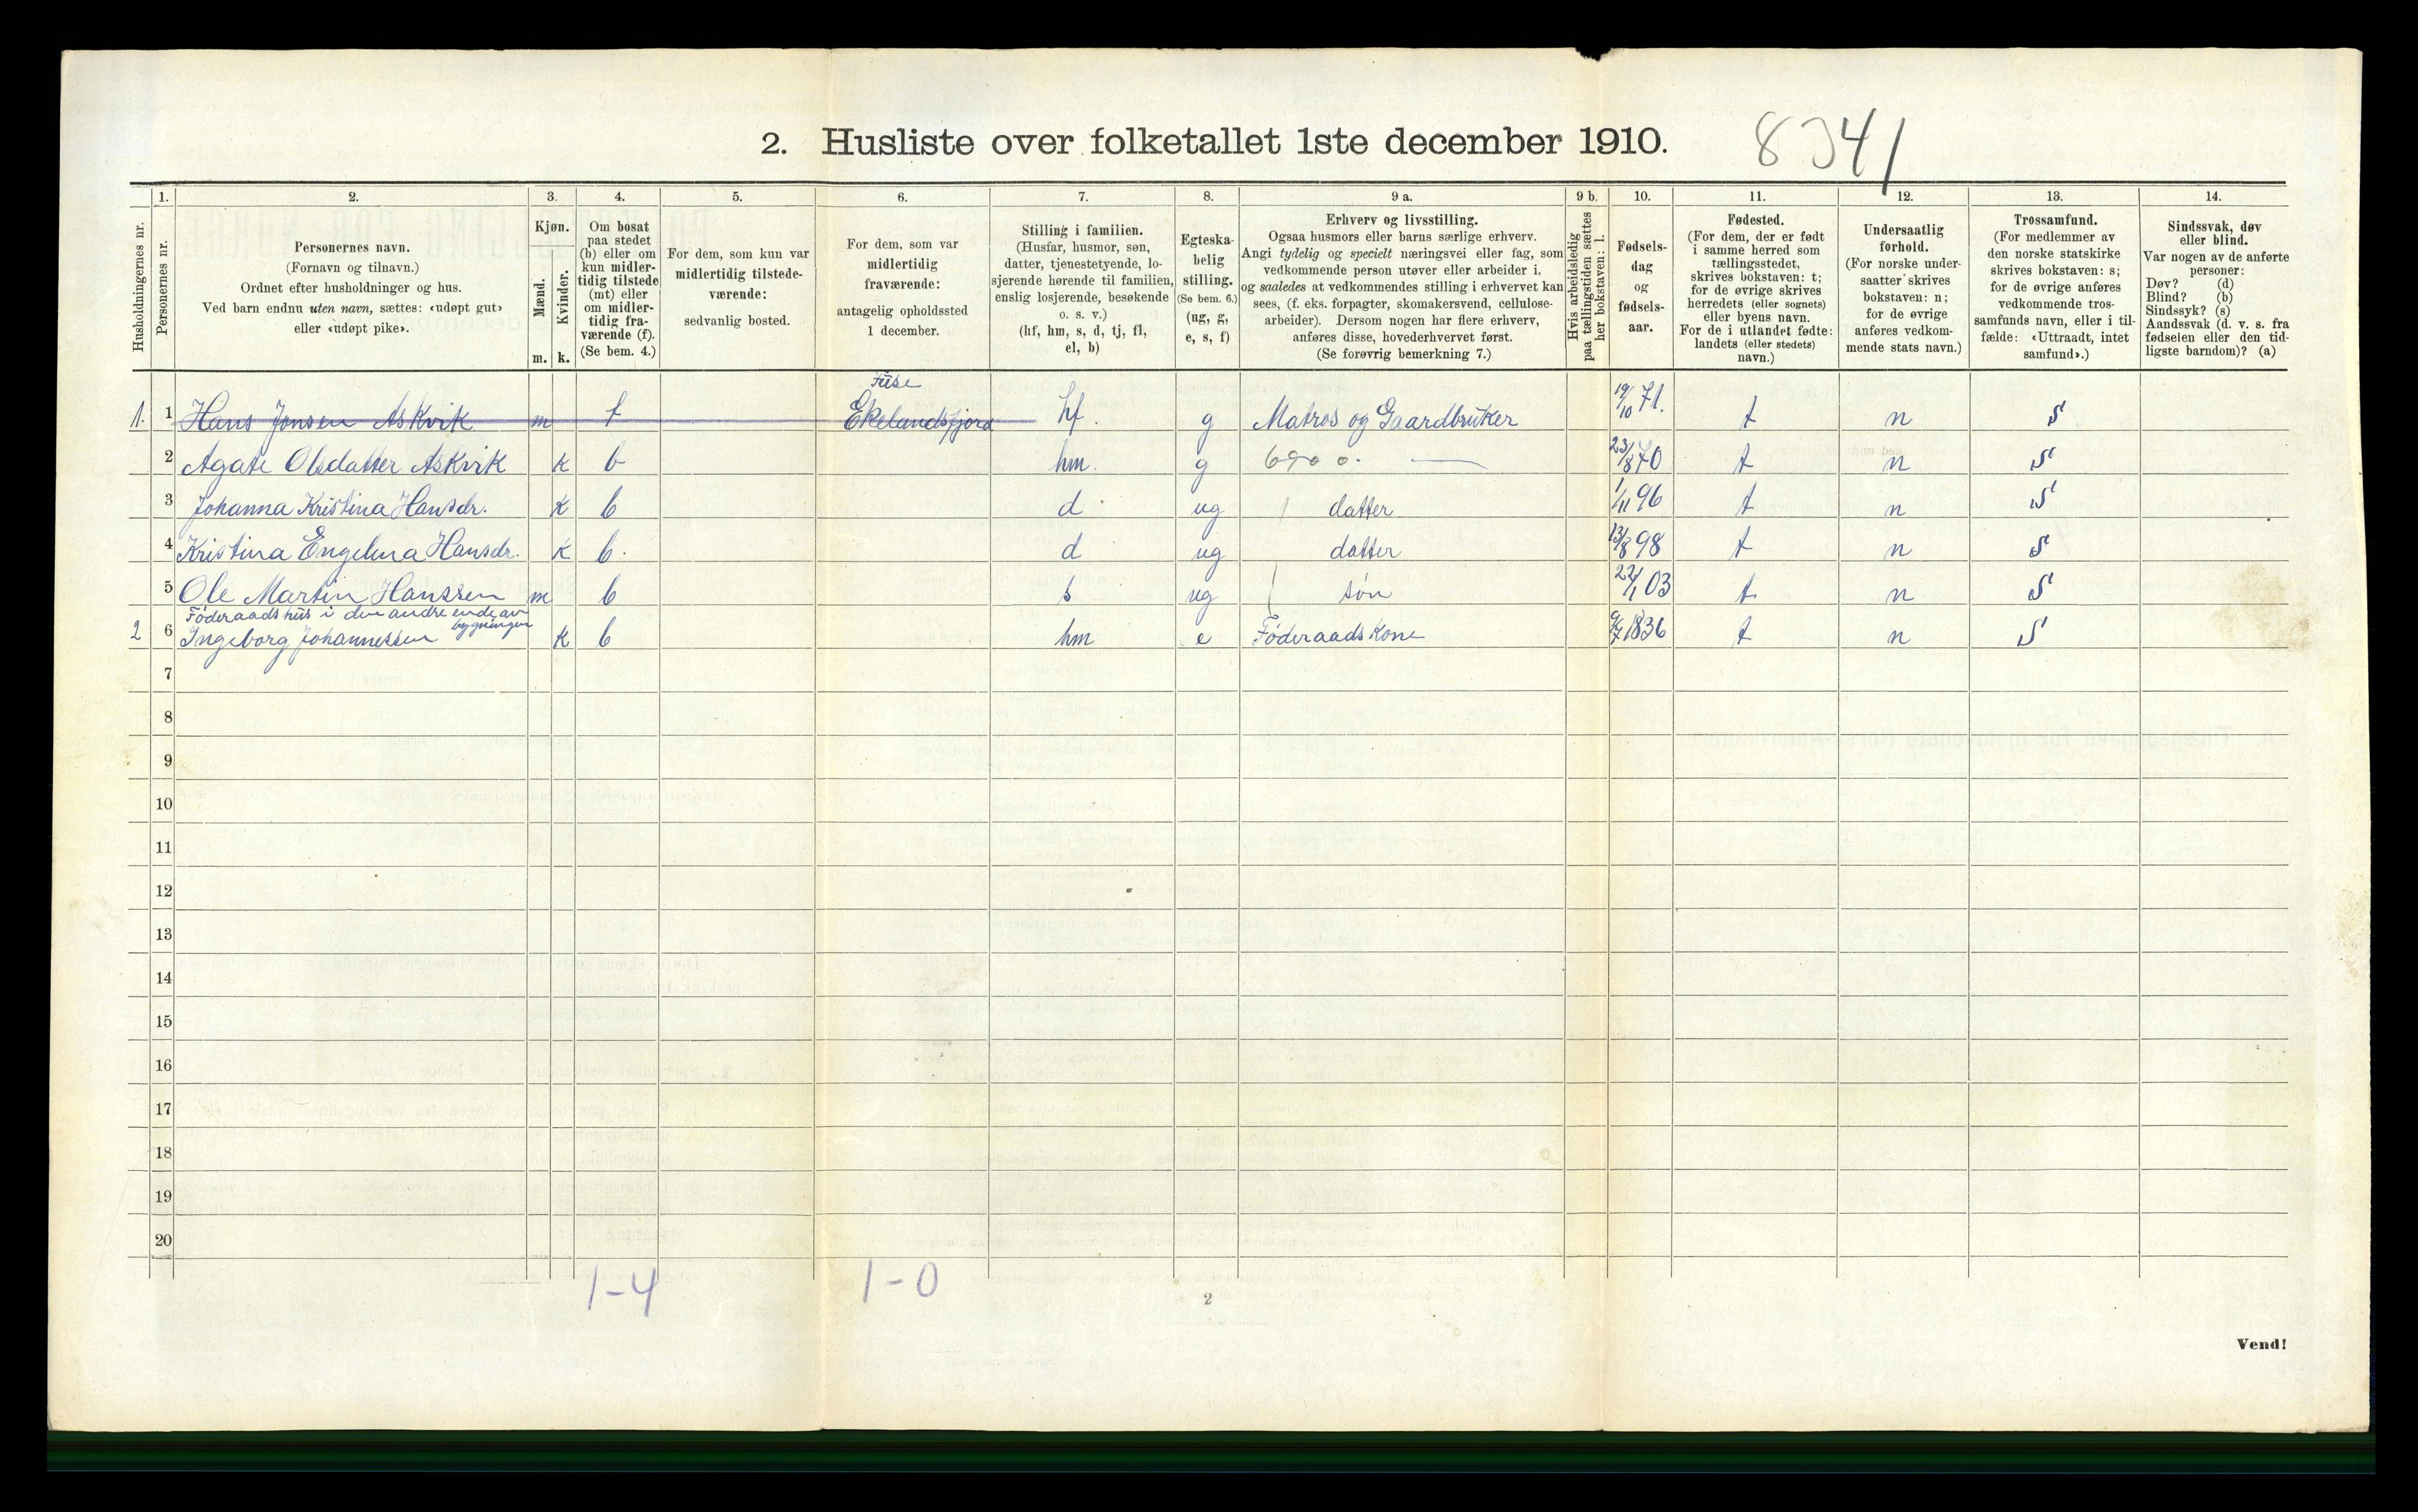 2. Husliste over folketallet 1ste december 1910.
8341
1. 2. 3. 4. 5. 6. 7. 8. 9 a. 9 b. 10. 11. 12. 13. 14.
Husholdningernes nr.
Personernes nr.
Personernes navn.
(Fornavn og tilnavn.)
Ordnet efter husholdninger og hus.
Ved barn endnu uten navn, sættes: «udøpt gut»
eller «udøpt pike».
Kjøn.
Mænd.
Kvinder.
m. k.
Om bosat
paa stedet
(b) eller om
kun midler-
tidig tilstede
(mt) eller
om midler-
tidig fra-
værende (f).
(Se bem. 4.)
For dem, som kun var
midlertidig tilstede-
værende:
sedvanlig bosted.
For dem, som var
midlertidig
fraværende:
antagelig opholdssted
1 december.
Stilling i familien.
(Husfar, husmor, søn,
datter, tjenestetyende, lo-
sjerende hørende til familien,
enslig losjerende, besøkende
o. s. v.)
(hf, hm, s, d, tj, fl,
el, b)
Egteska-
belig
stilling.
(Se bem. 6.)
(ug, g,
e, s, f)
Erhverv og livsstilling.
Ogsaa husmors eller barns særlige erhverv.
Angi tydelig og specielt næringsvei eller fag, som
vedkommende person utøver eller arbeider i,
og saaledes at vedkommendes stilling i erhvervet kan
sees, (f. eks. forpagter, skomakersvend, cellulose-
arbeider). Dersom nogen har flere erhverv,
anføres disse, hovederhvervet først.
(Se forøvrig bemerkning 7.)
Hvis arbeidsledig
paa tællingstiden sættes
her bokstaven: l.
Fødsels-
dag
og
fødsels-
aar.
Fødested.
(For dem, der er født
i samme herred som
tællingsstedet,
skrives bokstaven: t;
for de øvrige skrives
herredets (eller sognets)
eller byens navn.
For de i utlandet fødte:
landets (eller stedets)
navn.)
Undersaatlig
forhold.
(For norske under-
saatter skrives
bokstaven: n;
for de øvrige
anføres vedkom-
mende stats navn.)
Trossamfund.
(For medlemmer av
den norske statskirke
skrives bokstaven: s;
for de øvrige anføres
vedkommende tros-
samfunds navn, eller i til-
fælde: «Uttraadt, intet
samfund».)
Sindssvak, døv
eller blind.
Var nogen av de anførte
personer:
Døv? (d)
Blind? (b)
Sindssyk? (s)
Aandssvak (d. v. s. fra
fødselen eller den tid-
ligste barndom)? (a)
Fuse
1. 1 Hans Jonsen Askvik m f Ekelandsfjord hf. g Matros og Gaardbruker 19/10 71. t n S
2 Agate Olsdatter Askvik k b hm. g 6900. — 23/8 70 t n S
3 Johanna Kristina Hansdr. k b d ug datter 1/11 96 t n S
4 Kristina Engelina Hansdr. k b. d ug datter 13/8 98 t n S
5 Ole Martin Hanssen m b s ug søn 22/1 03 t n S
Föderaadshus i den andre ende av bygningen
2 6 Ingeborg Johannessen k b hm e Föderaadskone 9/7 1836 t n S
7
8
9
10
11
12
13
14
15
16
17
18
19
20
1-4 1-0
2
Vend!